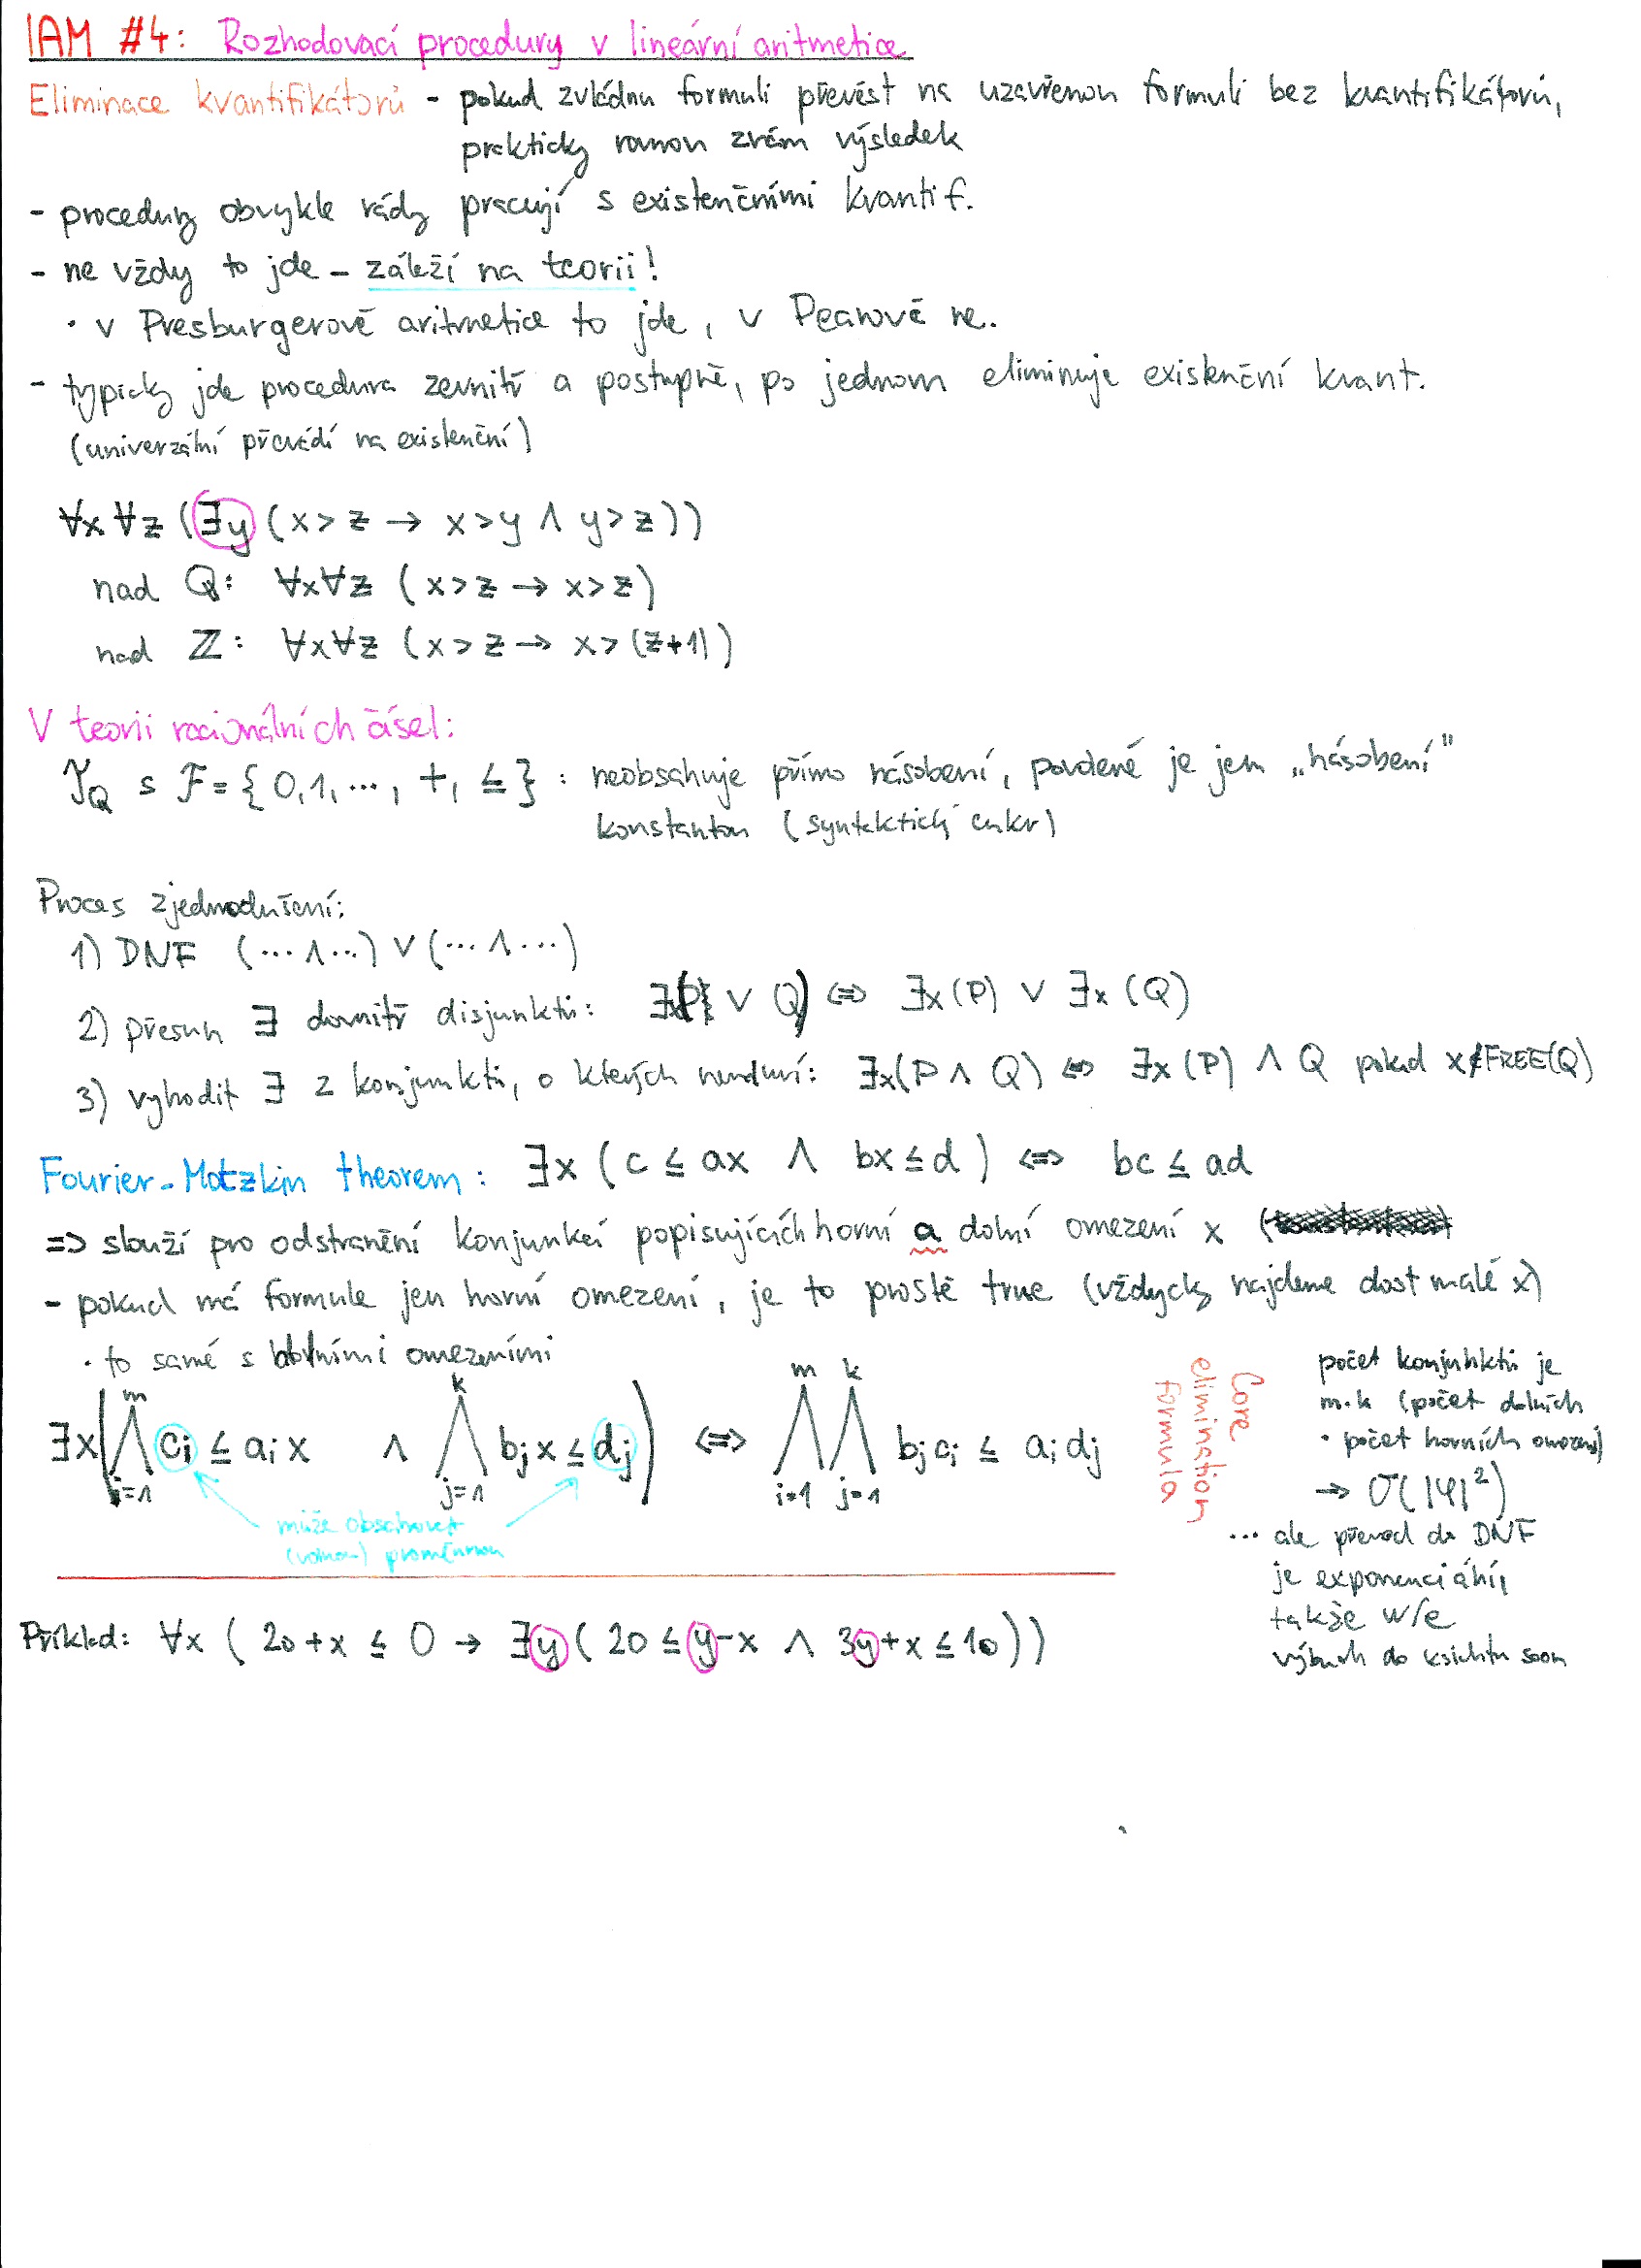 IAM #4: Rozhodovací procedury v lineární aritmetice
Eliminace kvantifikátorů - pokud zvládnu formuli převést na uzavřenou formuli bez kvantifikátorů,
prakticky rovnou znám výsledek
- procedury obvykle rády pracují s existenčními kvantif.
- ne vždy to jde – záleží na teorii!
• v Presburgerově aritmetice to jde, v Peanově ne.
- typicky jde procedura zevnitř a postupně, po jednom eliminuje existenční kvant.
(univerzální převádí na existenční)
∀x ∀z (∃y (x > z → x > y ∧ y > z))
nad Q: ∀x∀z (x > z → x > z)
nad ℤ: ∀x∀z (x > z → x > (z+1))
V teorii racionálních čísel:
𝒯Q s ℱ = {0,1,..., +, ≤} : neobsahuje přímo násobení, povolené je jen „násobení"
konstantou (syntaktický cukr)
Proces zjednodušení:
1) DNF (...∧...) ∨ (...∧...)
2) přesun ∃ dovnitř disjunktů: ∃x(P ∨ Q) ⇔ ∃x(P) ∨ ∃x(Q)
3) vyhodit ∃ z konjunktů, o kterých nemluví: ∃x(P ∧ Q) ⇔ ∃x(P) ∧ Q pokud x∉FREE(Q)
Fourier-Motzkin theorem: ∃x (c ≤ ax ∧ bx ≤ d) ⇔ bc ≤ ad
=> slouží pro odstranění konjunkcí popisujících horní a dolní omezení x
- pokud má formule jen horní omezení, je to prostě true (vždycky najdeme dost malé x)
• to samé s dolními omezeními
∃x(⋀_{i=1}^{m} ci ≤ ai x ∧ ⋀_{j=1}^{k} bj x ≤ dj) ⇔ ⋀_{i=1}^{m} ⋀_{j=1}^{k} bj ci ≤ ai dj
může obsahovat
(volnou) proměnnou
Core
elimination
formula
počet konjunktů je
m.k (počet dolních
• počet horních omezení)
→ O(|φ|²)
... ale převod do DNF
je exponenciální,
takže w/e
výbuch do ksichtu soon
Příklad: ∀x (20+x ≤ 0 → ∃y (20 ≤ y-x ∧ 3y+x ≤ 10))